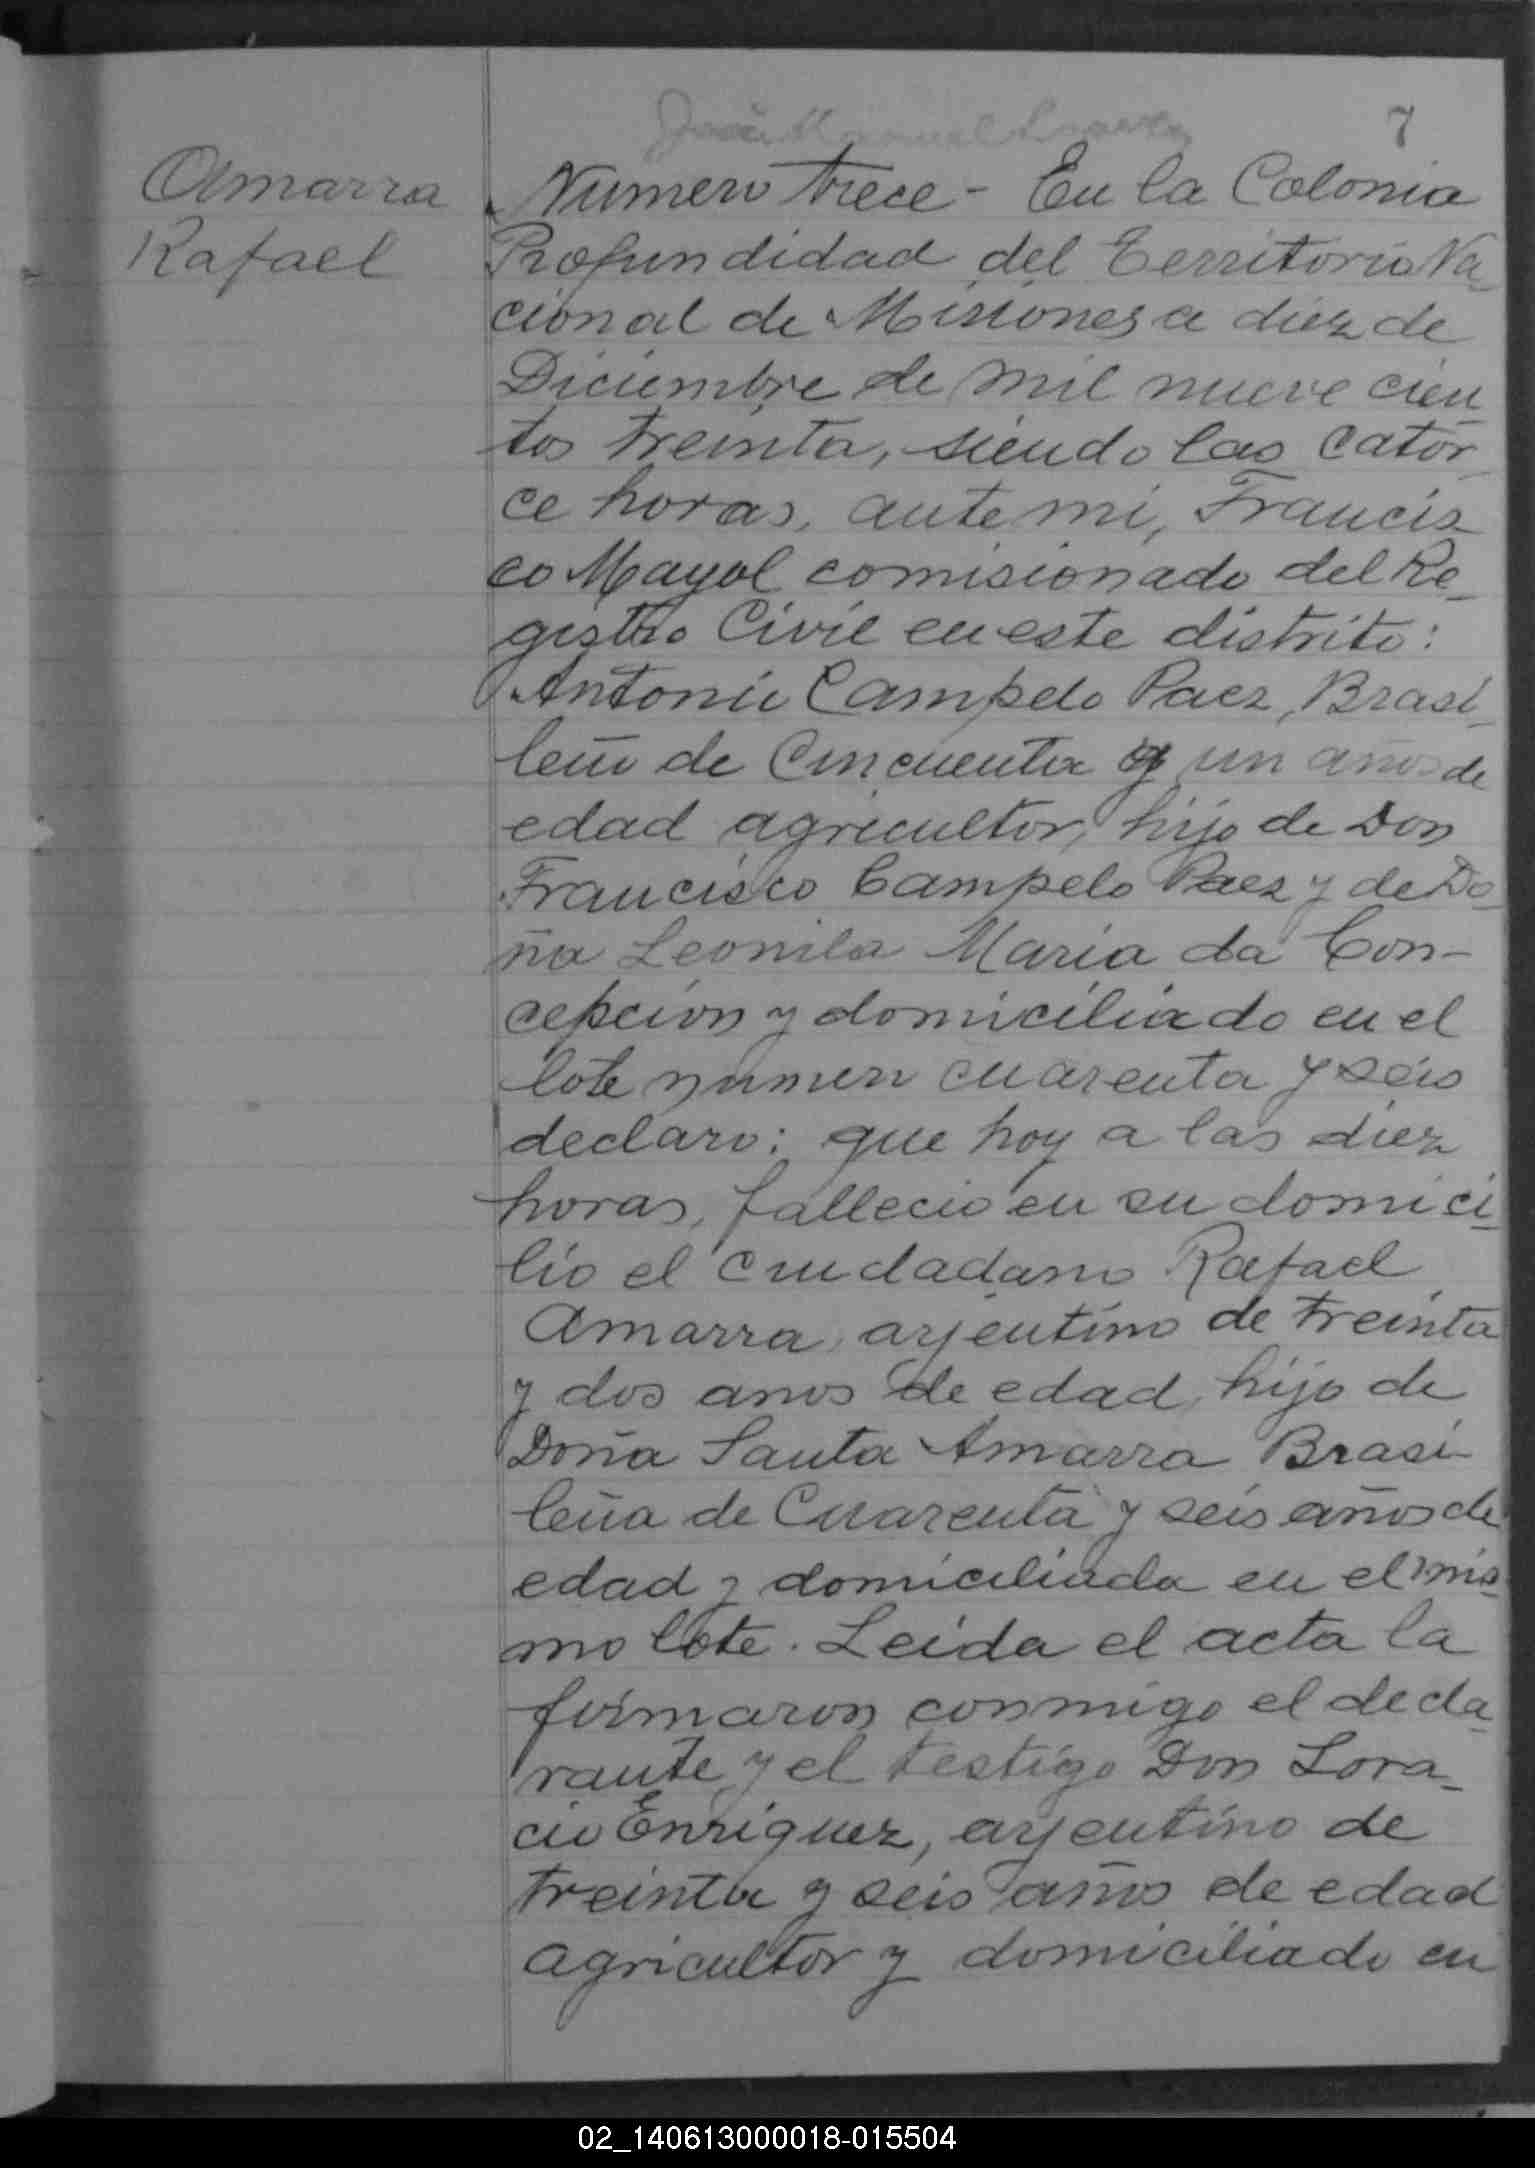 7
Amarra
Rafael
Numero trece - En la Colonia
Profundidad del Territorio Na_
cional de Misiones a diez de
Diciembre de mil nueve cien_
tos treinta, siendo las cator_
ce horas, ante mi, Francis_
co Mayol comisionado del Re_
gistro Civil en este distrito:
Antonio Campelo Paez, Brasi_
leño de Cincuenta y un años de
edad agricultor, hijo de Don
Francisco Campelo Paez y de Do_
ña Leonila Maria da Con-
cepcion y domiciliado en el
lote numero cuarenta y seis
declaro: que hoy a las diez
horas, fallecio en su domici_
lio el ciudadano Rafael
Amarra, arjentino de treinta
y dos anos de edad, hijo de
Doña Santa Amarra Brasi-
leña de Cuarenta y seis años de
edad y domiciliada en el mis_
mo lote. Leida el acta la
firmaron conmigo el decla_
rante y el testigo Don Lora_
cio Enriquez, arjentino de
treinta y seis años de edad
agricultor y domiciliado en
02_140613000018-015504